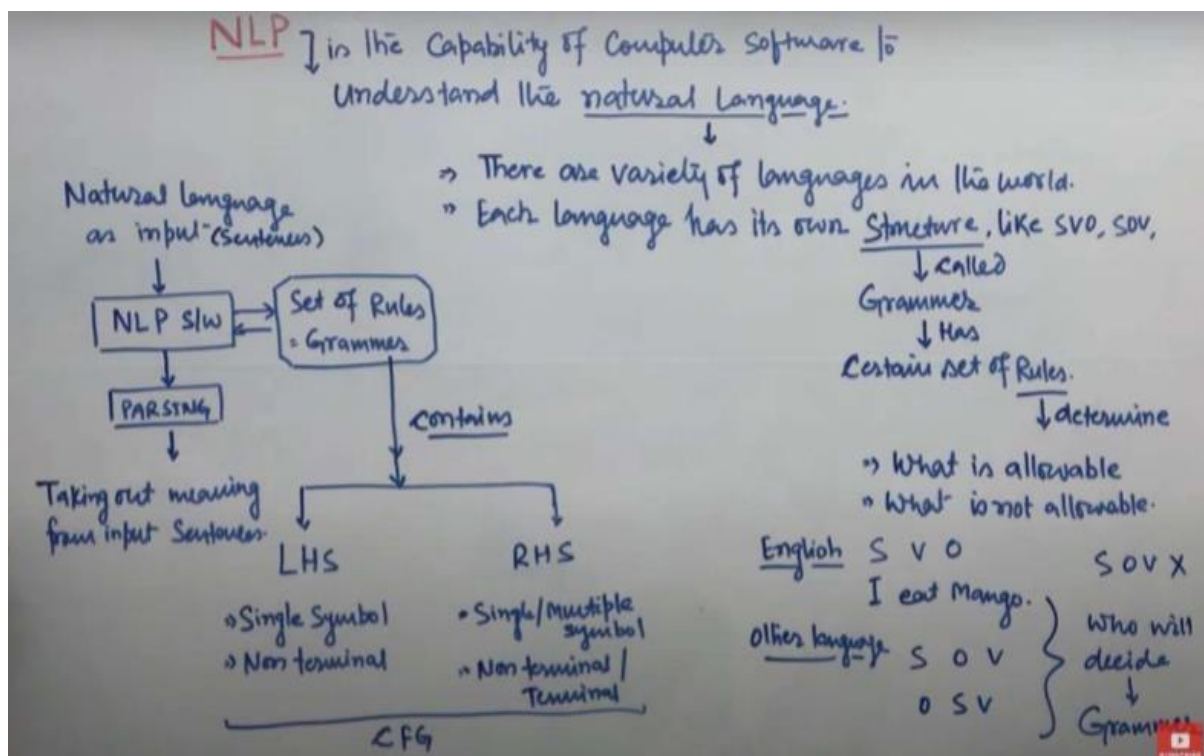 NLP is the Capability of Computer Software to
Understand the natural Language.
⇒ There are variety of languages in the world.
⇒ Each language has its own Structure, like SVO, SOV,
called
Grammer
Has
Certain set of Rules.
determine
⇒ What is allowable
⇒ What is not allowable.
English S V O
I eat Mango.
Other language S O V
O S V
S O V X
Who will
decide
Grammer
Natural Language
as input (Sentences)
NLP S/W
Set of Rules
• Grammer
PARSING
Taking out meaning
from input Sentences.
contains
LHS
⇒ Single Symbol
⇒ Non terminal
RHS
• Single/Multiple
symbol
• Non terminal /
Terminal
CFG